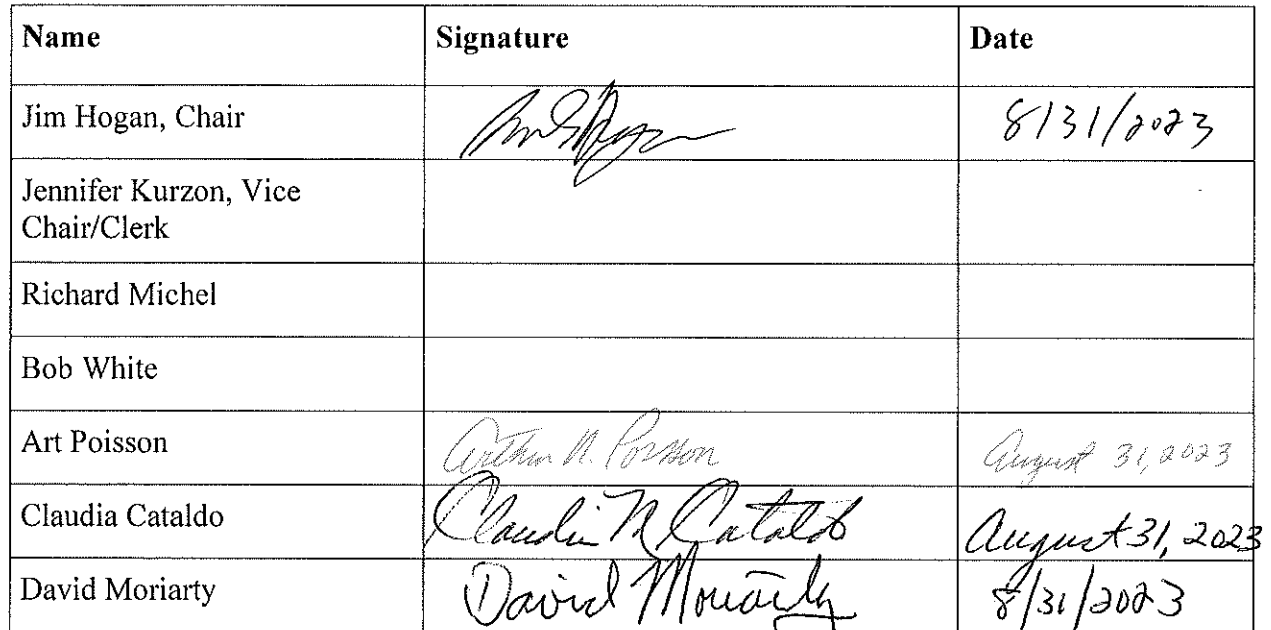 Name Signature Date
Jim Hogan, Chair 8/31/2023
Jennifer Kurzon, Vice
Chair/Clerk
Richard Michel
Bob White
Art Poisson Arthur N. Poisson August 31, 2023
Claudia Cataldo Claudia M Cataldo August 31, 2023
David Moriarty David Moriarty 8/31/2023